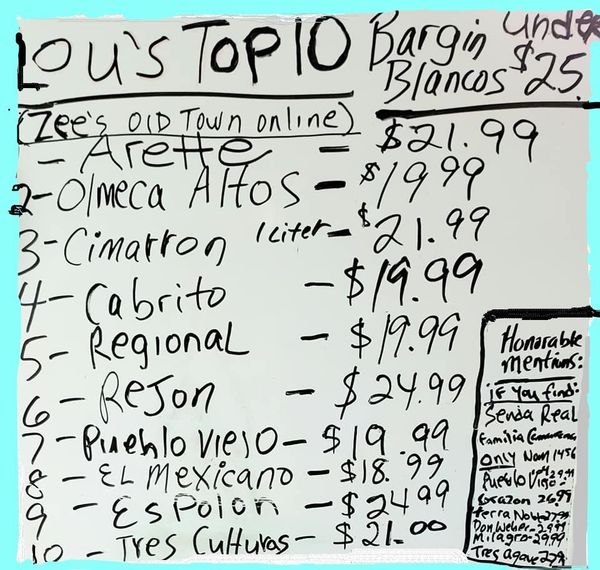 Lou's Top 10 Bargin Blancos Under $25
(Zee's Old Town online)
- Arette - $21.99
2- Olmeca Altos - $19.99
3- Cimarron 1 Liter - $21.99
4- Cabrito - $19.99
5- Regional - $19.99
6- Rejon - $24.99
7- Pueblo Viejo - $19.99
8- EL Mexicano - $18.99
9- Espolon - $24.99
10- Tres Culturas - $21.00
Honorable
mentions:
if You find:
Senda Real
Familia
only Nom 1456
Pueblo Viejo
Corazon 26.99
Terra Nob
Don Weber - 29.99
Milagro - 29.99
Tres Agave